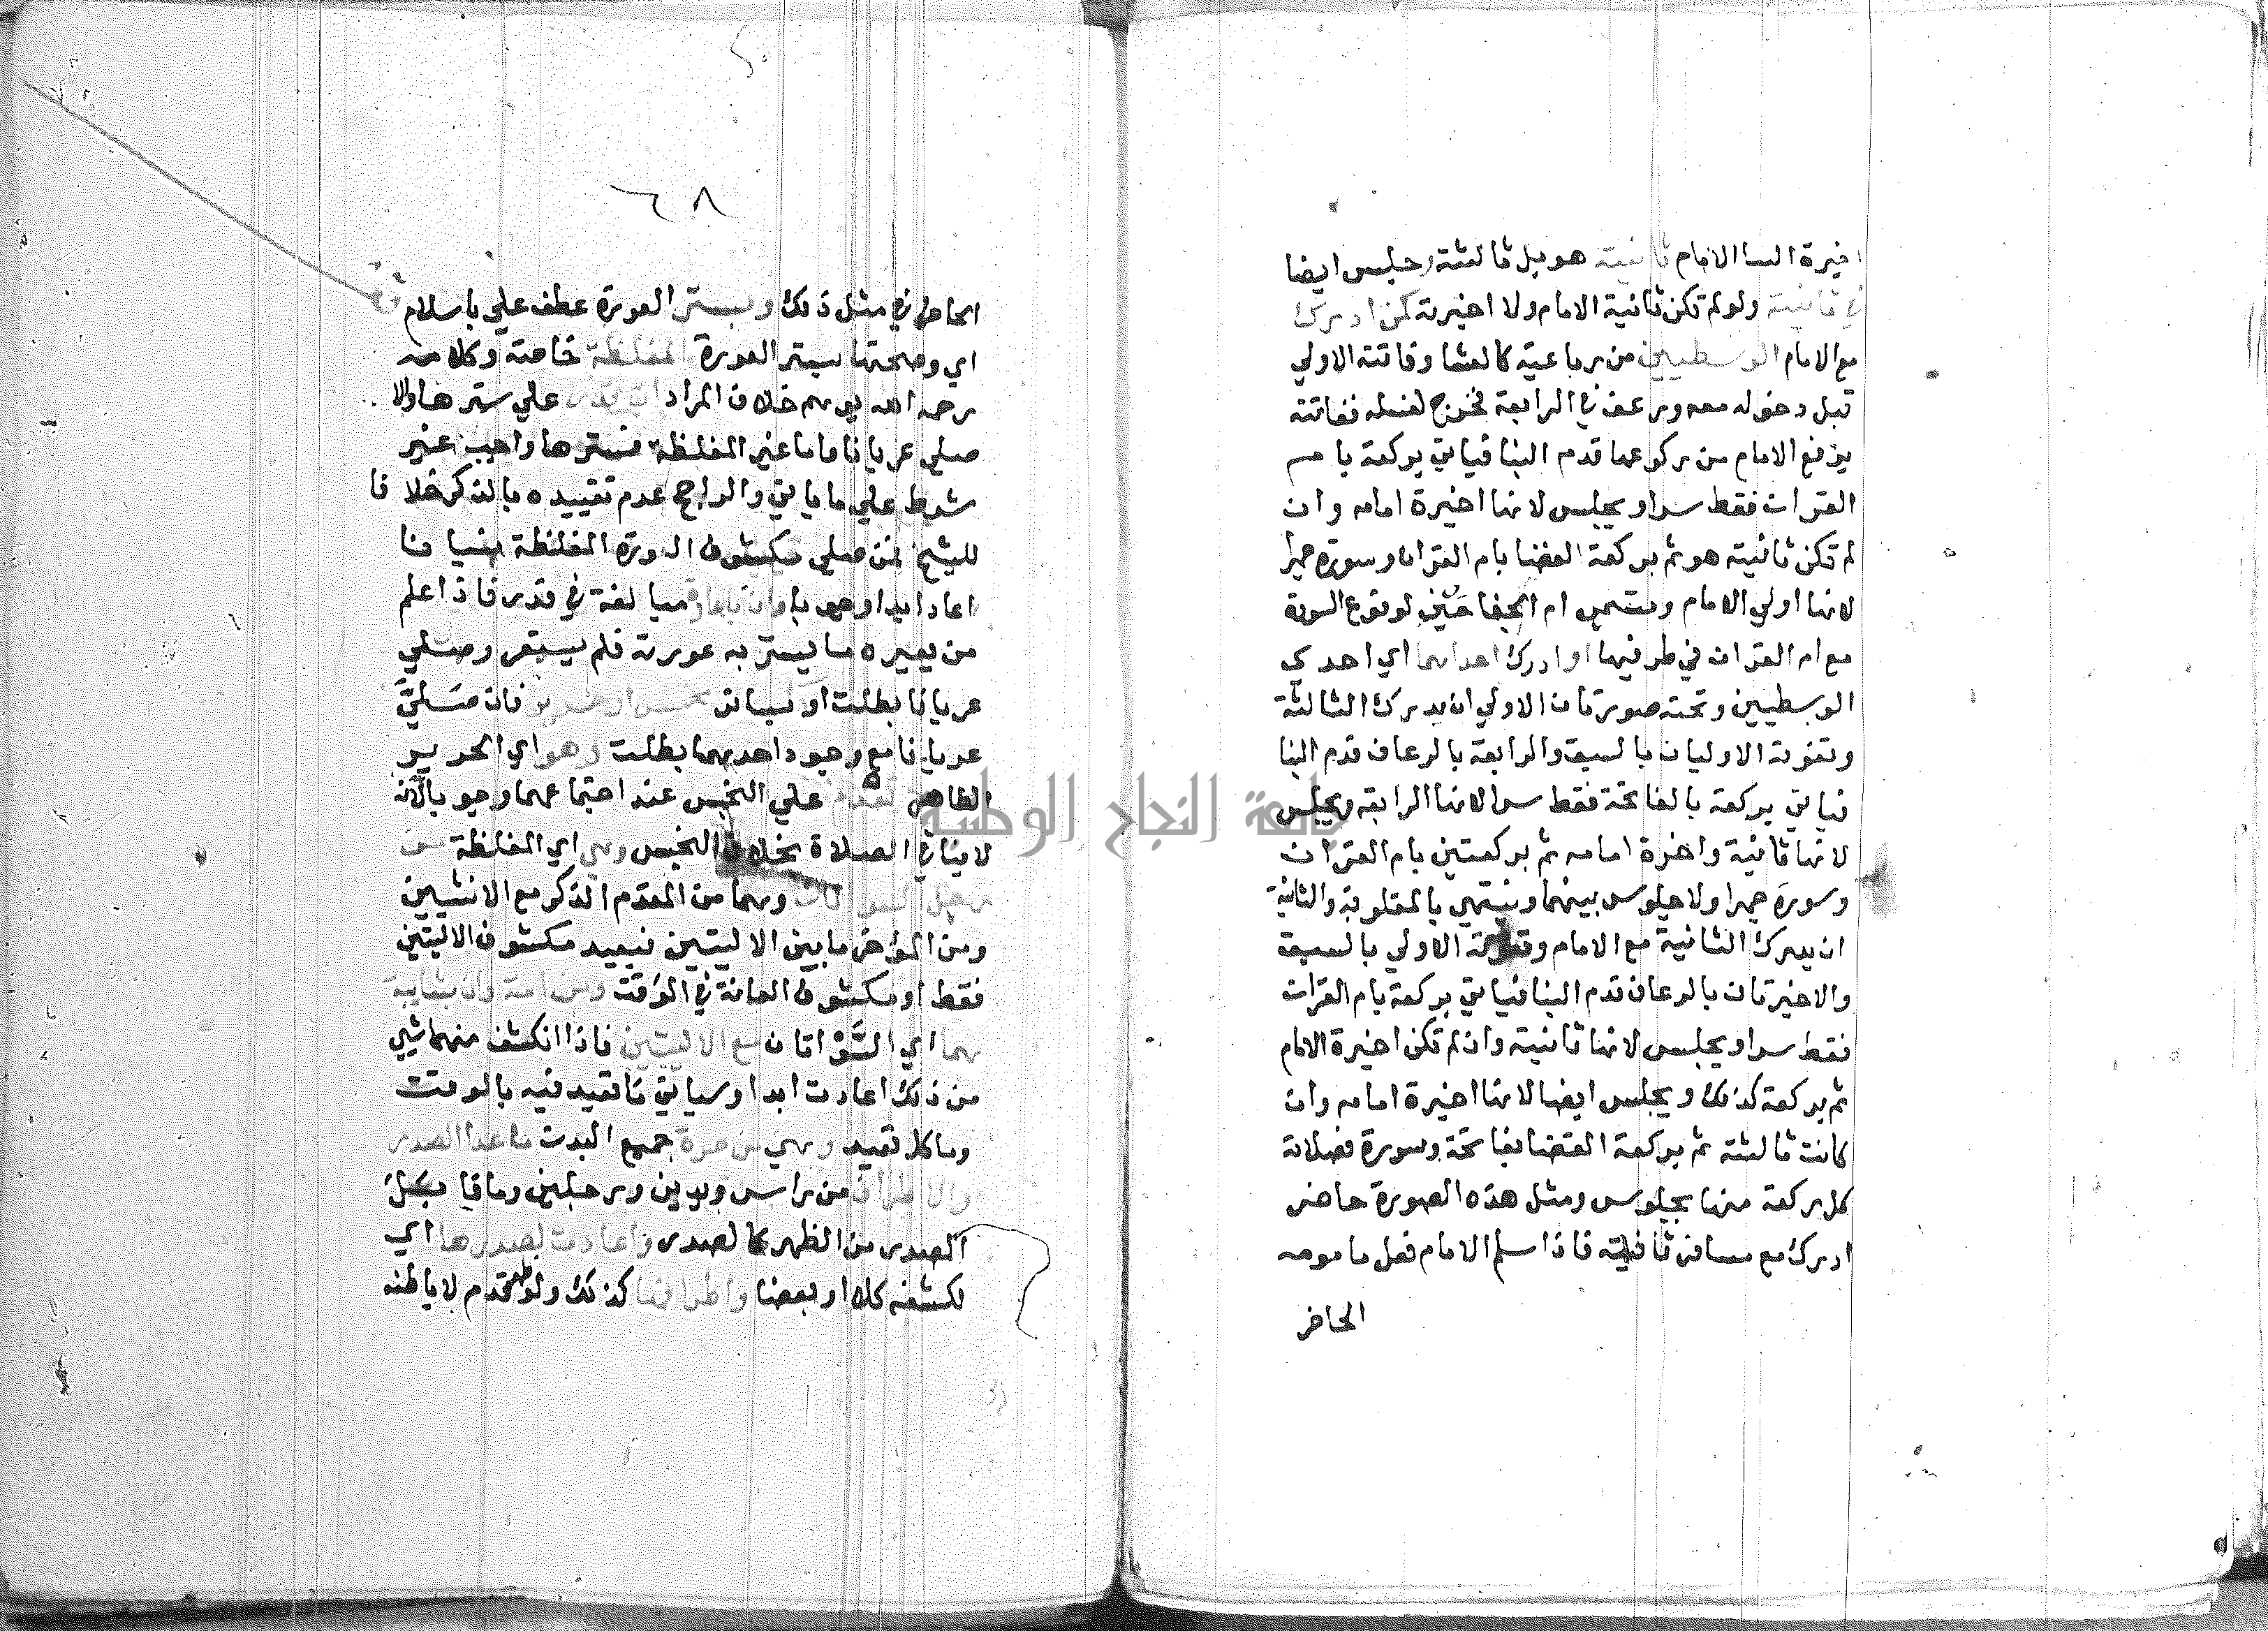 اخيرة السا الامام ثانيته هو بل ثالثته وجلس ايضا
في ثانيته ولو لم تكن ثانية الامام ولا اخيرته كمن ادرك
مع الامام الوسطيين من رباعية كالعشا وفاتته الاولي
قبل دخوله معه ورعف في الرابعة فخرج لغسله ففاتته
برفع الامام من ركوعها قدم البنا فياتي بركعة بام
القران فقط سرا ويجلس لانها اخيرة امامه وان
لم تكن ثانيته هو ثم بركعة القضا بام القران وسورة جهرا
لانها اولي الامام وتسمي ام الجناحين لوقوع السورة
مع ام القران في طرفيها او ادرك احداهما اي احدي
الوسطيين وتحته صورتان الاولي ان يدرك الثالثة
وتفوته الاوليان بالسبق والرابعة بالرعاف قدم البنا
فياتي بركعة بالفاتحة فقط سرا لانها الرابعة ويجلس
لانها ثانية واخرة امامه ثم بركعتين بام القران
وسورة جهرا ولا جلوس بينهما وتسمي بالمقلوبة والثانية
ان يدرك الثانية مع الامام وتفوته الاولي بالسبق
والاخيرتان بالرعاف قدم البنا فياتي بركعة بام القران
فقط سرا ويجلس لانها ثانيته وان لم تكن اخيرة الامام
ثم بركعة كذلك ويجلس ايضا لانها اخيرة امامه وان
كانت ثالثته ثم بركعة القضا بفاتحة وسورة فصلاته
كل ركعة منها بجلوس ومثل هذه الصورة حاضر
ادرك مع مسافر ثانيته فاذا سلم الامام فعل مامومه
الحاضر
٦٨
الحاضر في مثل ذلك وبستر العورة عطف علي باسلام
اي وصحتها بستر العورة المغلظة خاصة وكلامه
رحمه الله يوهم خلاف المراد ان قدر علي سترها والا
صلي عريانا واما غير المغلظة فسترها واجب غير
شرط علي ما ياتي والراجح عدم تقييده بالذكر خلافا
للشيخ فمن صلي مكشوف العورة المغلظة نسيانا
اعاد ابدا وجوبا وان باعارة مبالغة في قدر فاذا علم
من يعيره ما يستر به عورته فلم يستعر وصلي
عريانا بطلت او كان بنجس او حرير فان صلي
عريانا مع وجود احدهما بطلت وهو اي الحرير
الطاهر مقدم علي النجس عند اجتماعهما وجوبا لانه
لا ينافي الصلاة بخلاف النجس وهي اي المغلظة من
رجل السوءتان وهما من المقدم الذكر مع الانثيين
ومن المؤخر ما بين الاليتين فيعيد مكشوف الاليتين
فقط او مكشوف العانة في الوقت ومن امة وان بشايبة
هما اي السوءتان مع الاليتين فاذا انكشف منهما شي
من ذلك اعادت ابدا وسياتي ما تعيد فيه بالوقت
وما كلا تعيد وهي من حرة جميع البدن ما عدا الصدر
والاطراف من راس ويدين ورجلين وما قابل
الصدر من الظهر كالصدر واعادت لصدرها اي
لكشفه كلا او بعضا واطرافها كذلك ولو ظهر قدم لا باطنه